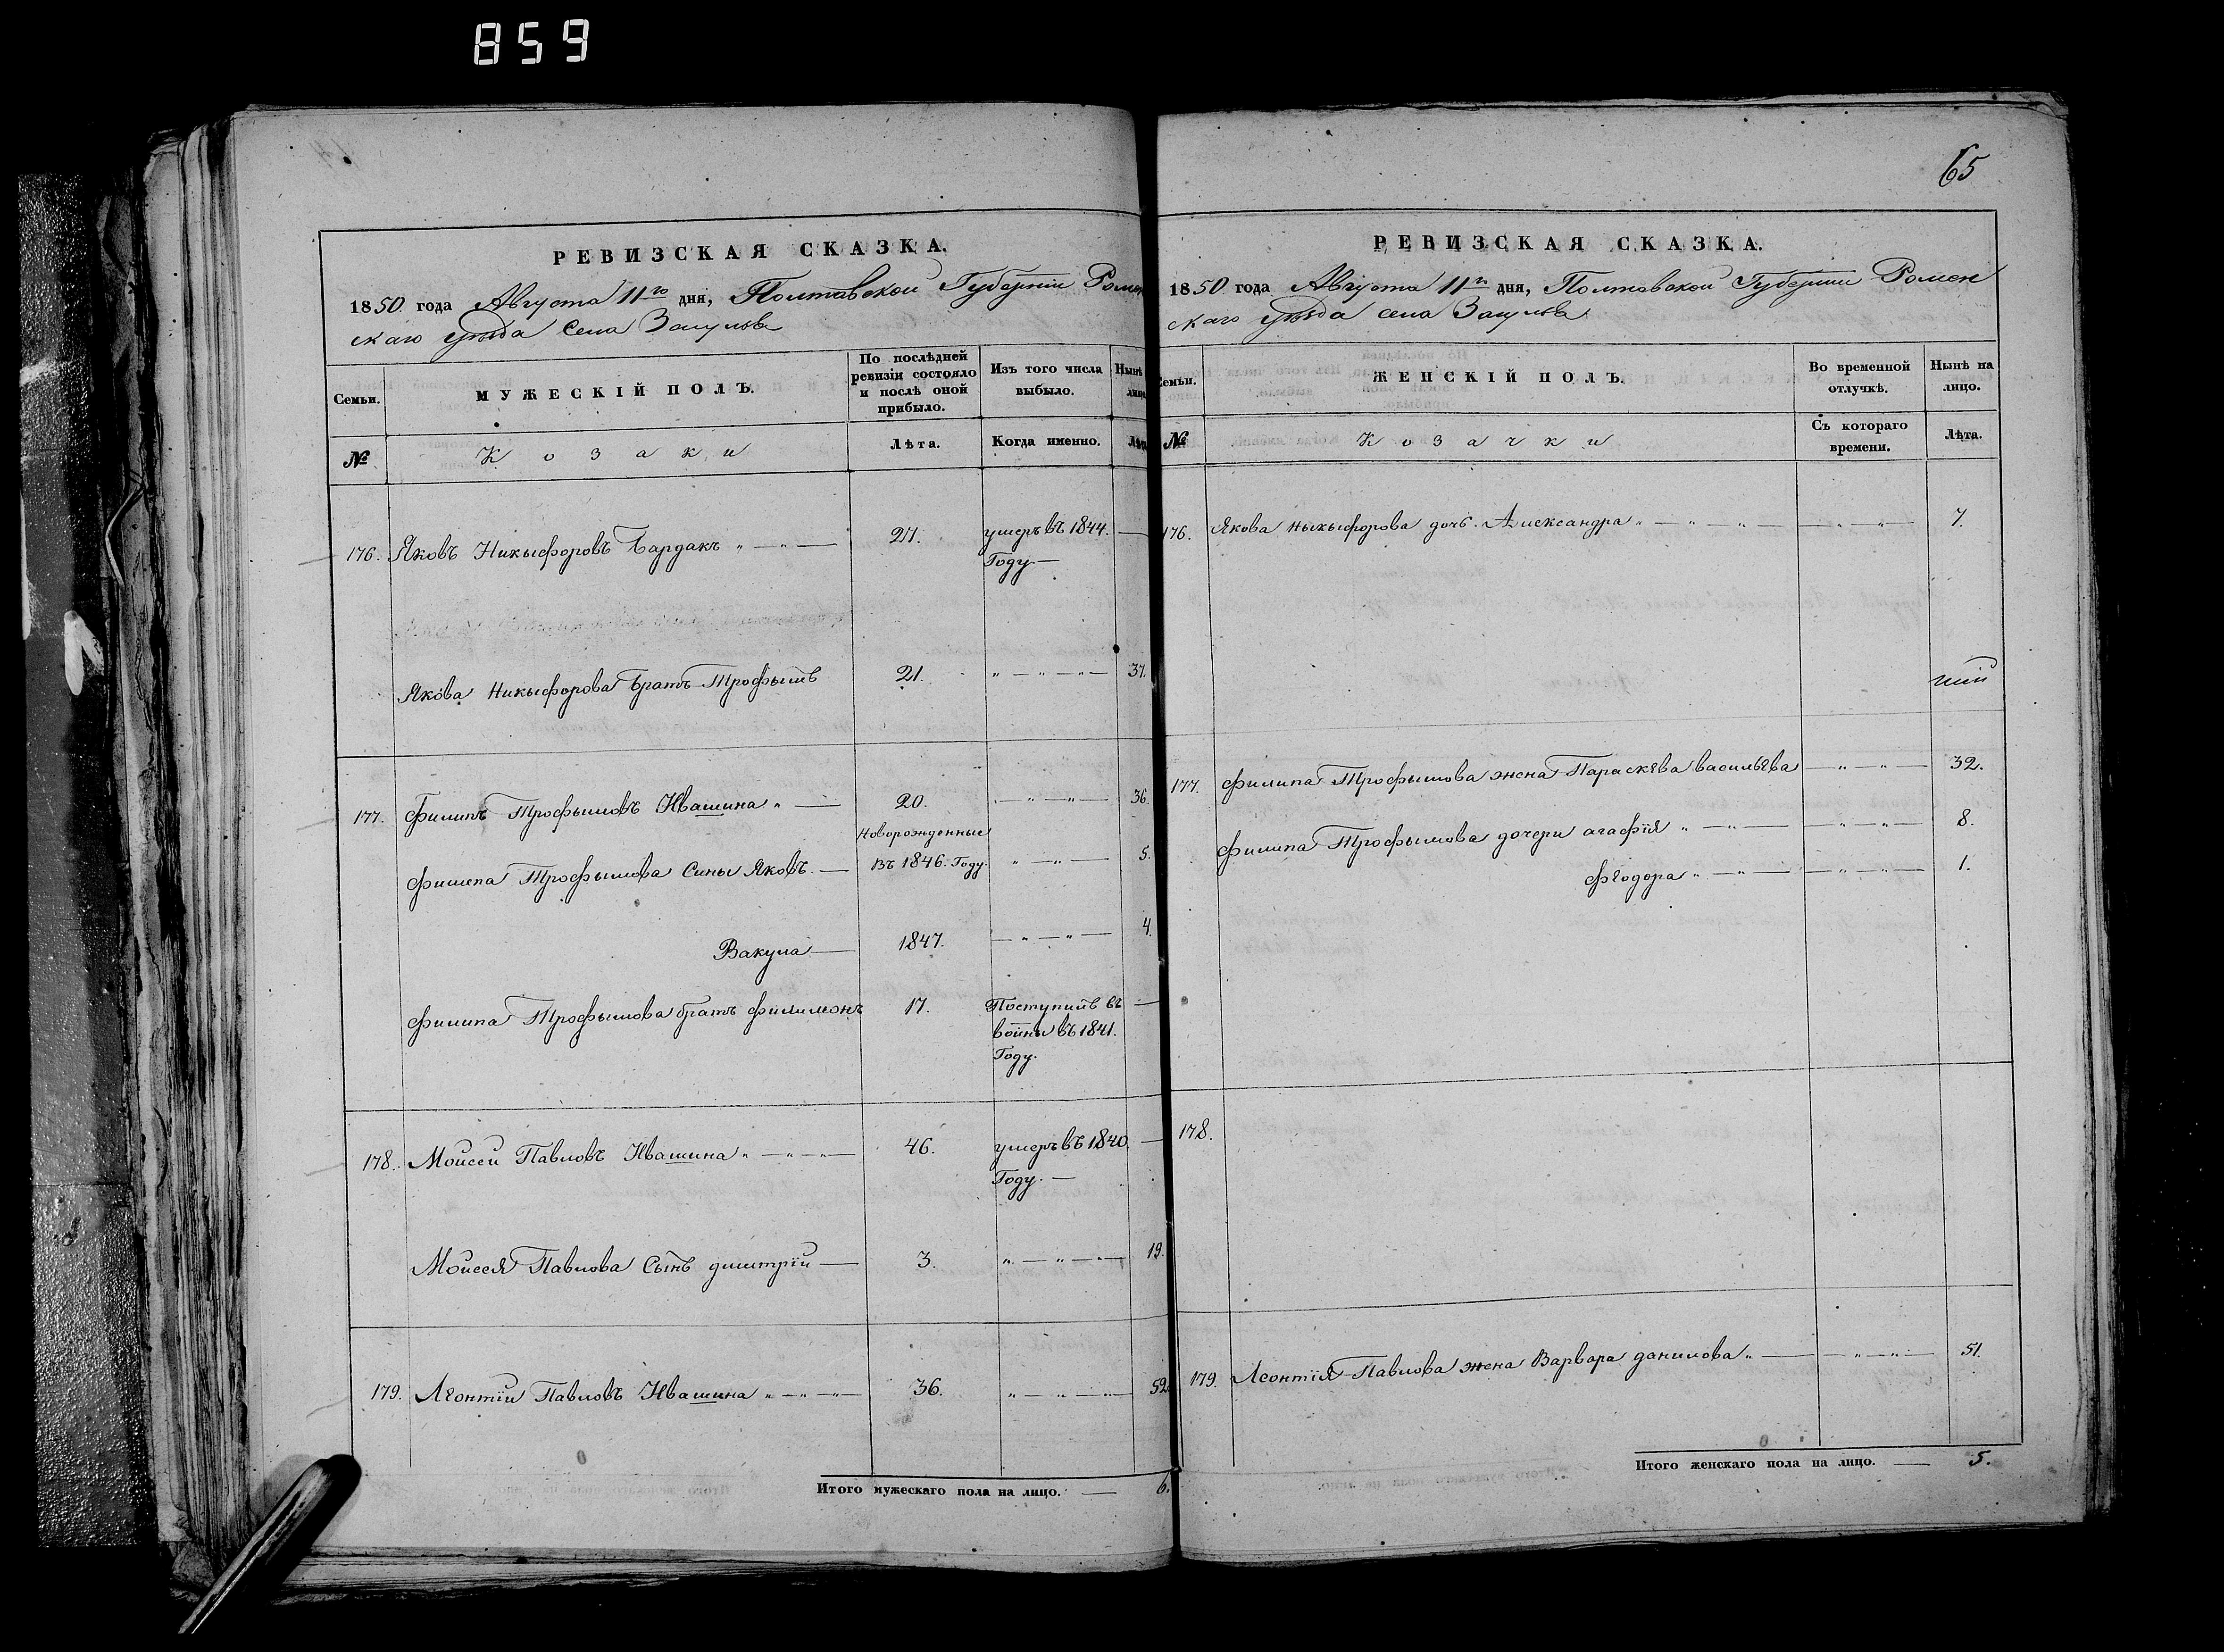 859
65
РЕВИЗСКАЯ СКАЗКА.
1850 года Августа 11го дня, Полтавской Губерніи Ромен
скаго уѣзда села
Семьи.
МУЖЕСКІЙ ПОЛЪ.
По послѣдней ревизіи состояло и послѣ оной прибыло.
Изъ того числа выбыло.
Нынѣ
лицо
№
Козаки
Лѣта.
Когда именно.
Лѣта
176. Яковъ Никыфоровъ Бардакъ 27. умеръ въ 1844.
Году
Якова Никыфорова братъ Трофымъ 21. 37.
177. Филипъ Трофымовъ Ивашина 20. 36.
Новорожденные
Филипа Трофымова Сины Яковъ въ 1846. Году. 5.
Вакула 1847. 4.
Филипа Трофымова братъ филимонъ 17. Поступилъ въ
войны въ 1841.
Году.
178. Моисей Павловъ Ивашина 46. умеръ въ 1840.
Году.
Моисея Павлова Сынъ дмитрій 3. 19.
179. Леонтій Павловъ Ивашина 36. 52.
Итого мужескаго пола на лицо. 6.
РЕВИЗСКАЯ СКАЗКА.
1850 года Августа 11го дня, Полтавской Губерніи Ромен
скаго уѣзда села
Семьи.
ЖЕНСКІЙ ПОЛЪ.
Во временной отлучкѣ.
Нынѣ на лицо.
№
Козачки
Съ котораго времени.
Лѣта.
176. Якова Ныкыфорова дочь Александра 7.
177. филипа Трофымова жена Параскева васильева 32.
филипа Трофымова дочери агафія 8.
феодора 1.
178.
179. Леонтія Павлова жена Варвара данилова 51.
Итого женскаго пола на лицо. 5.